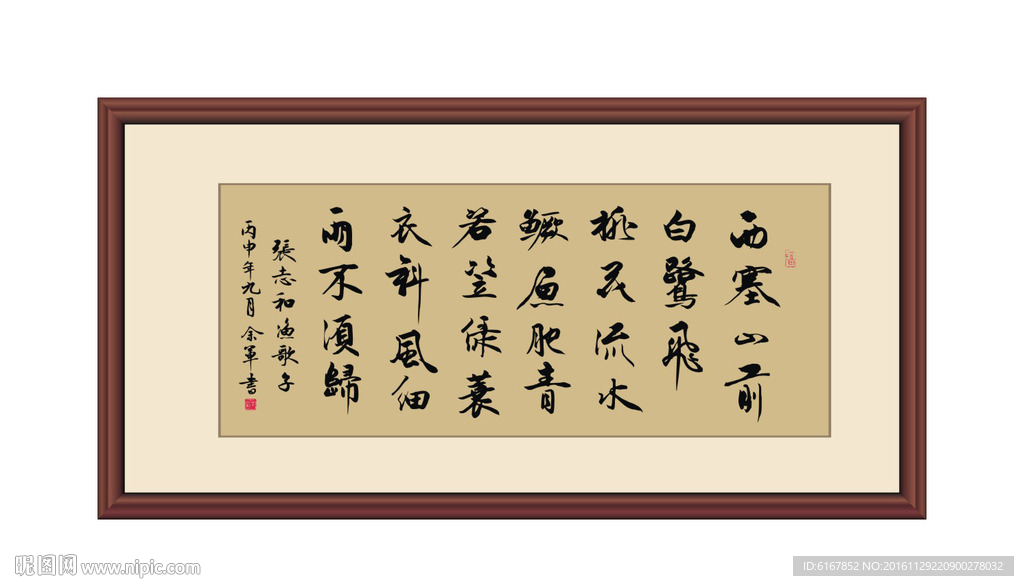 西塞山前
白鷺飛
桃花流水
鱖魚肥青
箬笠綠蓑
衣斜風細
雨不須歸
張志和漁歌子
丙申年九月 余軍書
昵图网 www.nipic.com
ID:6167852 NO:20161129220900278032